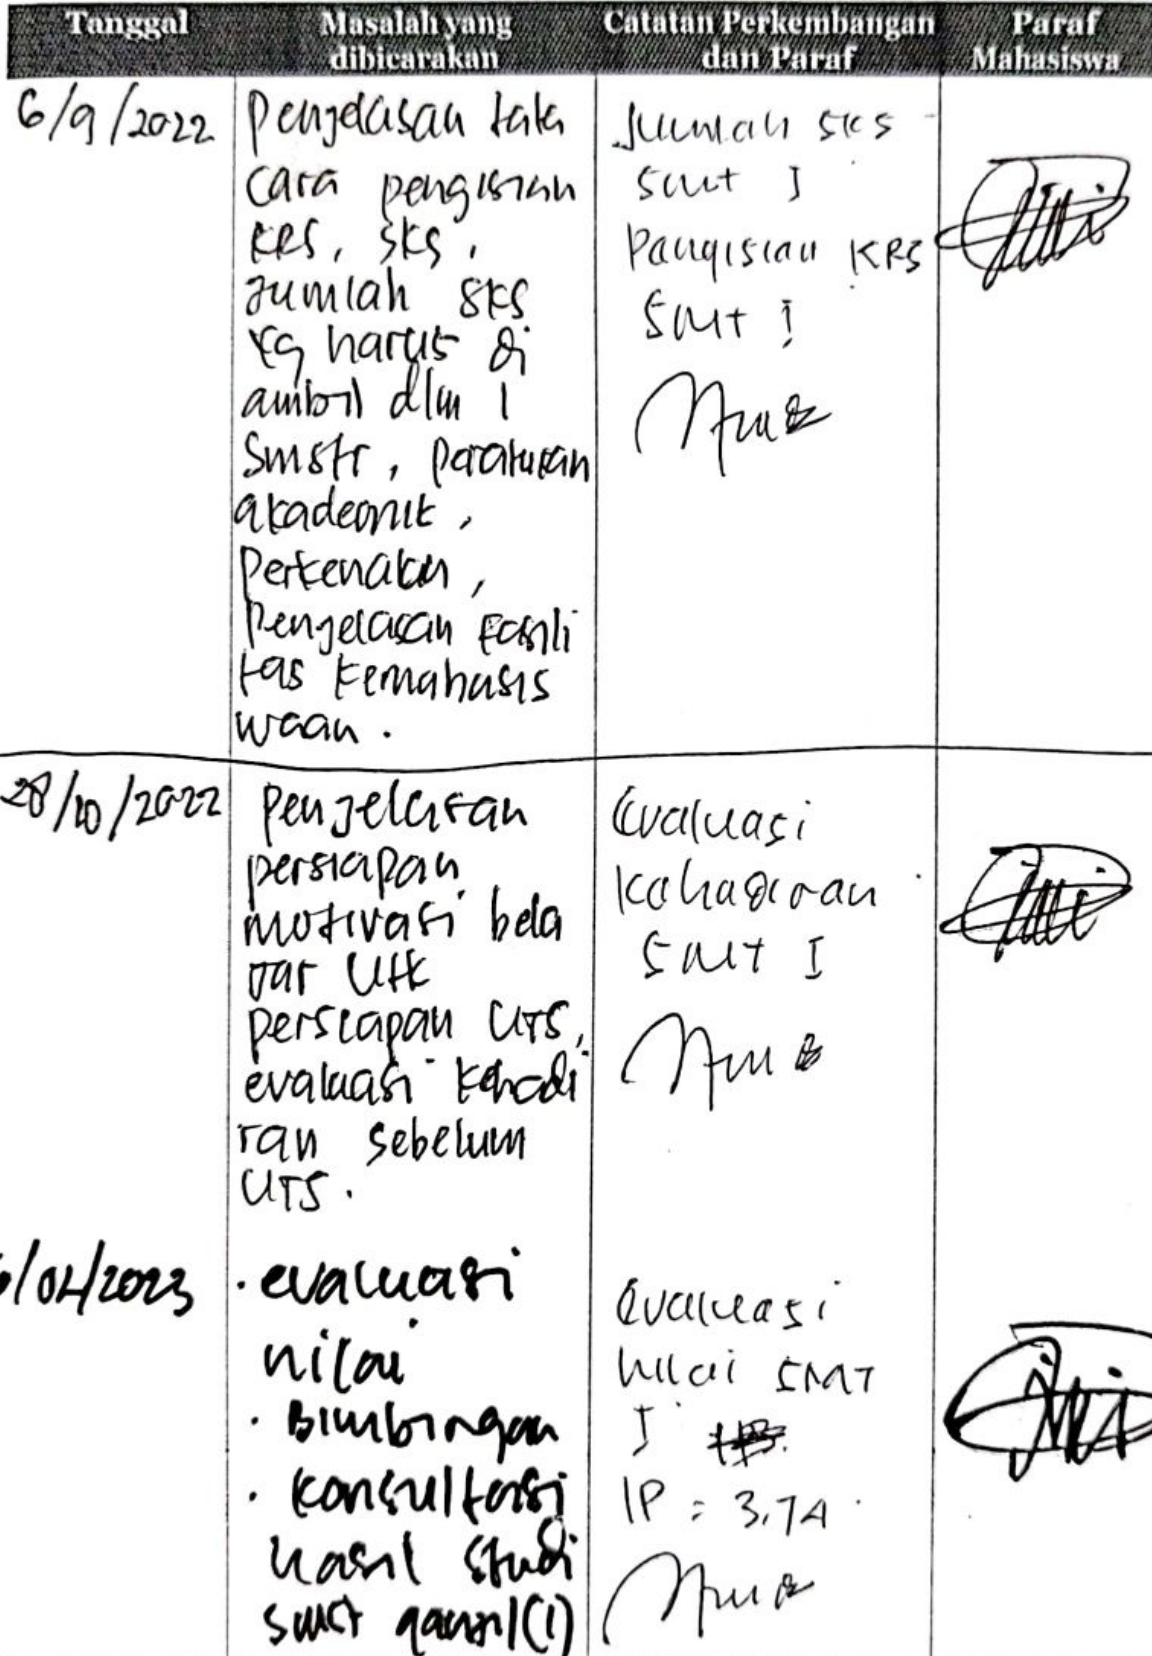 Tanggal
Masalah yang
dibicarakan
Catatan Perkembangan
dan Paraf
Paraf
Mahasiswa
6/9/2022
Penjelasan tata
cara pengisian
KRS, SKS,
Jumlah SKS
yg harus di
ambil dlm 1
Smstr, peraturan
akademik,
Perkenalan,
Penjelasan Fasili
tas kemahasis
waan.
Jumlah SKS
Smt I
Pengisian KRS
Smt I
28/10/2022
Penjelasan
persiapan
motivasi bela
jar utk
persiapan UTS,
evaluasi kehadi
ran sebelum
UTS.
Evaluasi
Kehadiran
Smt I
/04/2023
· evaluasi
nilai
· Bimbingan
· Konsultasi
hasil studi
smt ganjil (1)
Evaluasi
nilai SMT
I
IP = 3,74